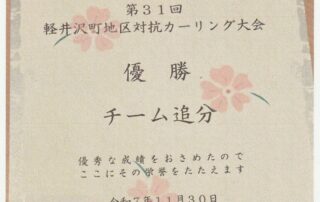 第３１回
軽井沢町地区対抗カーリング大会
優勝
チーム追分
優秀な成績をおさめたので
ここにその栄誉をたたえます
令和７年１１月３０日